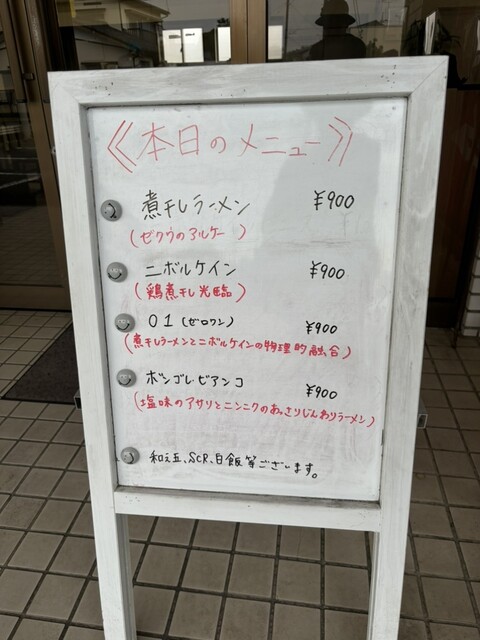 ≪本日のメニュー≫
煮干しラーメン ¥900
(ゼクウのアルケー)
ニボルケイン ¥900
(鶏煮干し光臨)
01(ゼロワン) ¥900
(煮干しラーメンとニボルケインの物理的融合)
ボンゴレ・ビアンコ ¥900
(塩味のアサリとニンニクのあっさりじんわりラーメン)
和え玉、SCR、白飯等ございます。